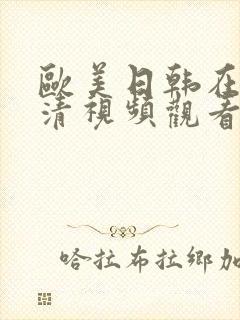 歐美日韩在
清視頻觀看
哈拉布拉鄉加